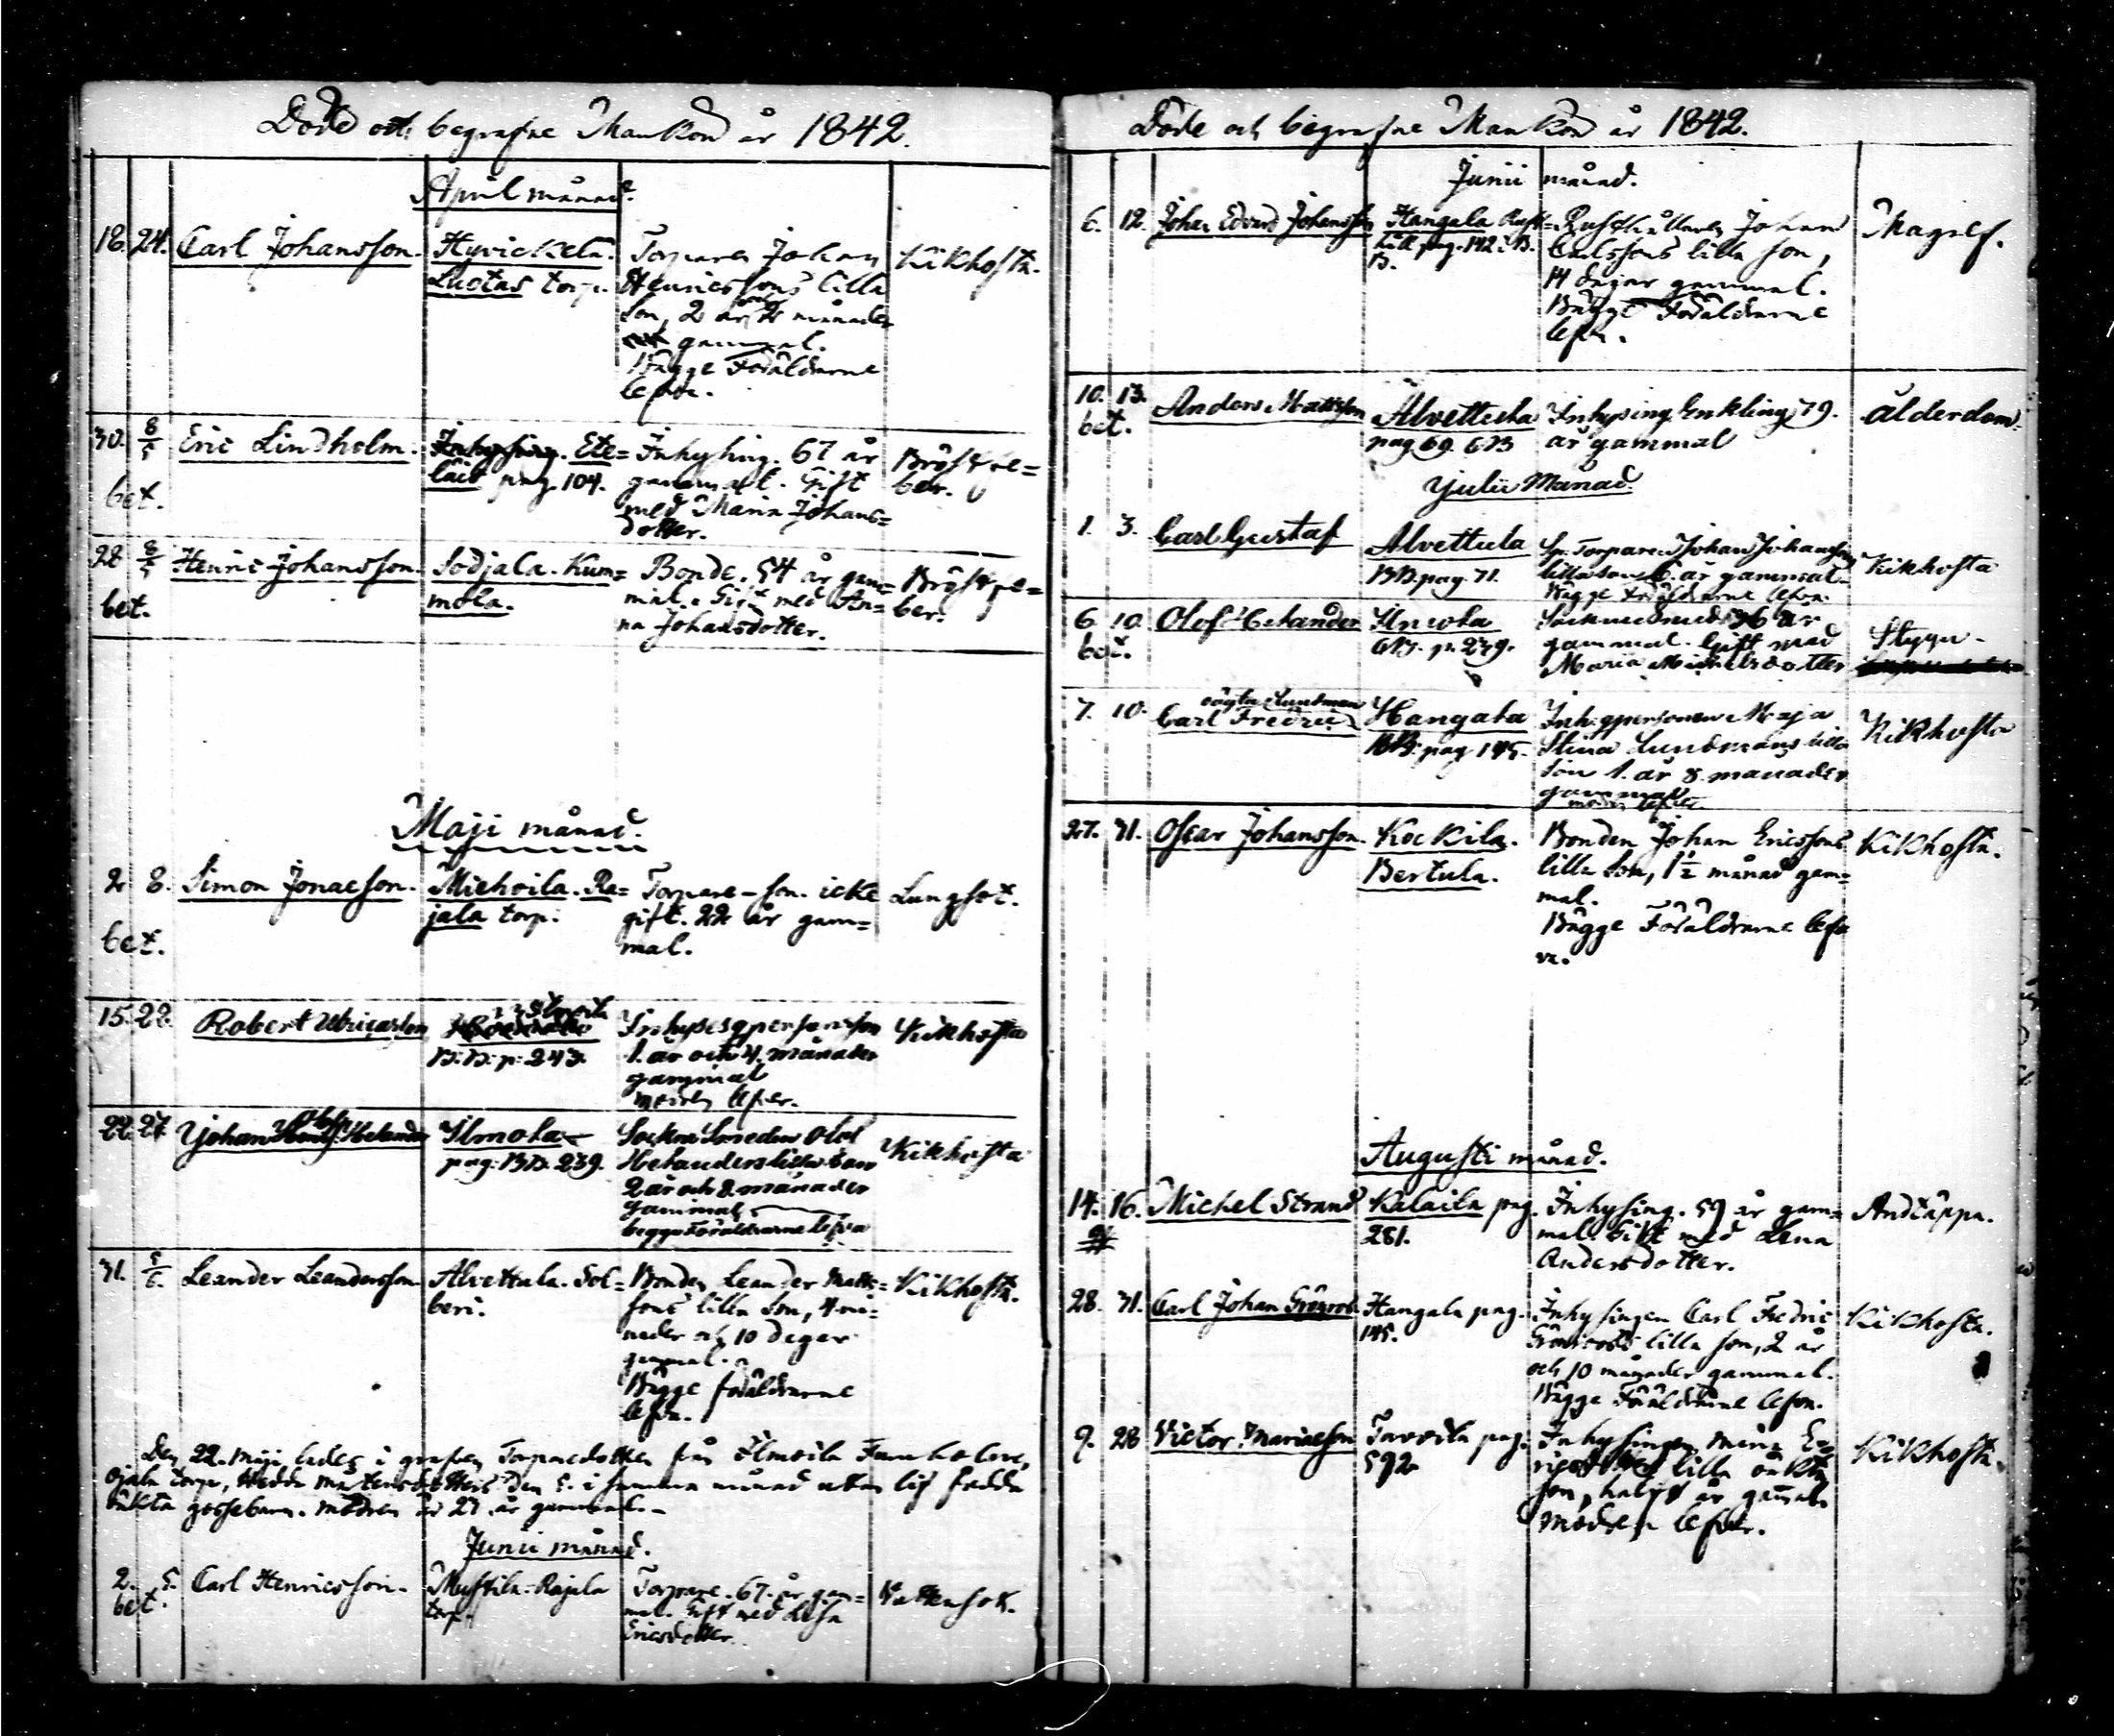 Döde och begrafne Mankön år 1842.
April månad.
18. 24. Carl Johansson. Hyvickelä. Torparen Johan Kikhosta.
Luotas torp. Henricssons lilla
son, 2 år månader
gammal.
Bägge Föräldrarne
lefva.
30. 8/5 Eric Lindholm. Inhysing. Ete= Inhysing. 67 år Bröstfe=
läis pag. 104. gammal. Gift ber.
bet. med Maria Johans=
dotter.
28 8/5 Henric Johansson. Sodjala. Kum= Bonde. 54 år gam= Bröstfe=
bet. mola. mal. Gift med An= ber.
na Johansdotter.
Maji månad.
2. 8. Simon Jonaeson. Miehoila. Ra= Torpare-son. icke Lungsot.
jala torp. gift. 22 år gam=
bet. mal.
15. 22. Robert Kikhosta
B.B. p. 243. 1. år och 4. månader
gammal
modren lefver.
22. 27 Johan Helander Ilmola Sockne Smeden Olof Kikhosta
pag. BB. 239. Helanders lilla son
2 år och 8 månader
gammal
begge Föräldrarne lefva
31. 5/6. Leander Leandersson Alvettula. Sol= Bonden Leander Matts= Kikhosta.
beri. sons lilla son, 4 må=
nader och 10 dagar
gammal.
Bägge föräldrarne
lefva.
Den 22. Maji lades i grafven Torparedotren från Ilmoila
Ojala torp, Hedda Mårtensdotters Den 5. i samma månad utan lif födda
oäkta gossebarn. Modren är 27. år gammal. -
Junii månad.
2. 5. Carl Henricsson. Mustila. Rajala Torpare. 67. år gam= Vattensot.
bet. torp. mal. Gift med Lisa
Ericsdotter.
Döde och begrafne Mankön år 1842.
Junii månad.
6. 12. Johan Edvard Johansson Hangala Rust= Rusthållaren Johan Magref.
håll pag. 142. B. Carlssons lilla son,
B. 14 dagar gammal.
Bägge Föräldrarne
lefva.
10. 13. Anders Mattsson Alvettula Inhysing Enkling 79. ålderdom.
bet. pag 69. år gammal
Julii Månad.
1. 3. Carl Gustaf Alvettula Torparen Johan Johansson Kikhosta
BB. pag. 71. lilla son 6. år gammal.
Bägge Föräldrarne lefva.
6. 10. Olof Helander Ilmola Sockne Smed 36 år Stygn
bet. p. 239. gammal. Gift med
Maria Michelsdotter
oägta Lundman
7. 10. Carl Fredric Hangala Maja Kikhosta
BB. pag 145. Stina Lundmans lilla
son 1. år 8. månader
gammal
modren lefver
27. 31. Oscar Johansson. Kockila. Bonden Johan Ericssons Kikhosta.
Bertula. lilla son, 1½ månad gam=
mal.
Bägge Föräldrarne lefva
Augusti månad.
14. 16. Michel Strand Kalaila pag. Inhysing. 59 år gam= Andtäppa.
281. mal. Gift med Lena
Andersdotter.
28. 31. Carl Johan Grönroos Hangala pag. Inhysingen Carl Fredric Kikhosta.
145. Grönroos lilla son, 2 år
och 10 månader gammal.
Bägge Föräldrarne lefva.
9. 28 Victor Mariaeson pag. Inhysingen Maria E= Kikhosta.
592 ricsdotters lilla oäkta
son, halft år gammal.
Modren lefver.